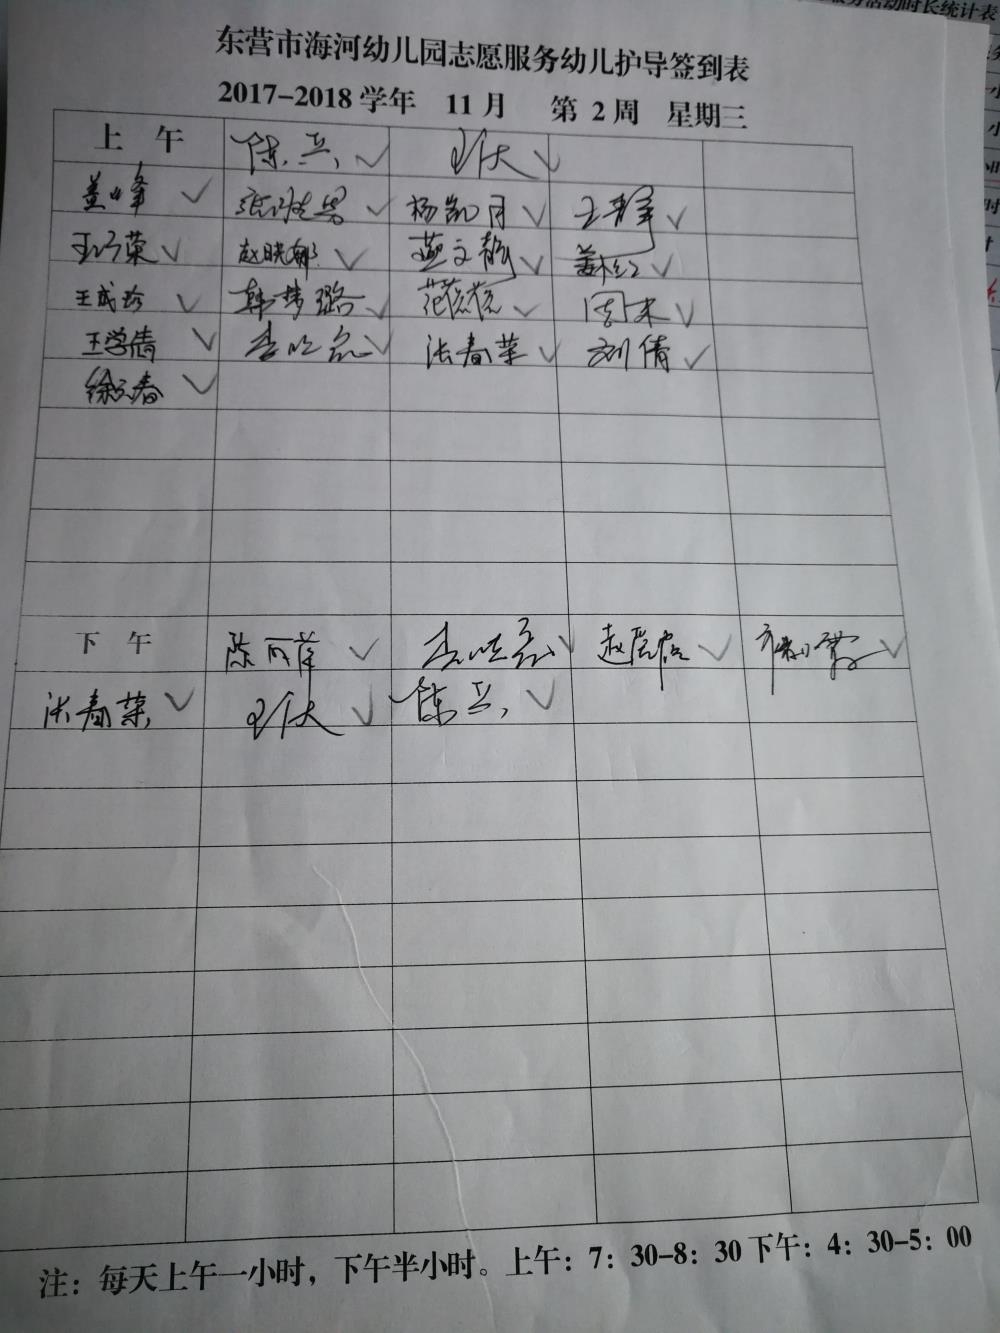 服务活动时长统计表
东营市海河幼儿园志愿服务幼儿护导签到表
2017-2018 学年 11 月 第 2 周 星期三
上 午 陈兵 ✓ 王伟 ✓
姜峰 ✓ ✓ 杨凯月 ✓ 王春军 ✓
王巧荣 ✓ 赵晓娜 ✓ 燕文静 ✓ 姜红 ✓
王成珍 ✓ 韩梦璐 ✓ 范 ✓ 周末 ✓
王学倩 ✓ ✓ 张春荣 ✓ 刘倩 ✓
徐春 ✓
下 午 陈丽萍 ✓ ✓ 赵 ✓ ✓
张春荣 ✓ 王伟 ✓ 陈兵 ✓
注：每天上午一小时，下午半小时。上午：7：30-8：30 下午：4：30-5：00